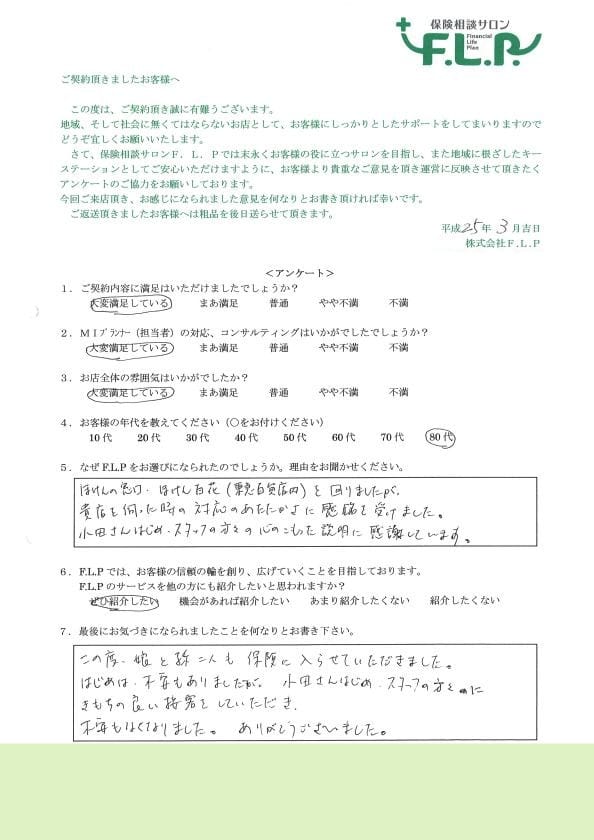 保険相談サロン
F.L.P.
Financial
Life
Plan
ご契約頂きましたお客様へ
この度は、ご契約頂き誠に有難うございます。
地域、そして社会に無くてはならないお店として、お客様にしっかりとしたサポートをしてまいりますので
どうぞ宜しくお願いいたします。
さて、保険相談サロンF．L．Pでは末永くお客様の役に立つサロンを目指し、また地域に根ざしたキー
ステーションとしてご安心いただけますように、お客様より貴重なご意見を頂き運営に反映させて頂きたく
アンケートのご協力をお願いしております。
今回ご来店頂き、お感じになられました意見を何なりとお書き頂ければ幸いです。
ご返送頂きましたお客様へは粗品を後日送らせて頂きます。
平成25年 3月吉日
株式会社F.L.P
＜アンケート＞
1．ご契約内容に満足はいただけましたでしょうか？
大変満足している まあ満足 普通 やや不満 不満
2．MIプランナー（担当者）の対応、コンサルティングはいかがでしたでしょうか？
大変満足している まあ満足 普通 やや不満 不満
3．お店全体の雰囲気はいかがでしたか？
大変満足している まあ満足 普通 やや不満 不満
4．お客様の年代を教えてください（○をお付けください）
10代 20代 30代 40代 50代 60代 70代 80代
5．なぜF.L.Pをお選びになられたのでしょうか。理由をお聞かせください。
ほけんの窓口・ほけん百花（東急百貨店内）を回りましたが、
貴店を伺った時の対応のあたたかさに感銘を受けました。
小田さんはじめ、スタッフの方々の心のこもった説明に感謝しています。
6．F.L.Pでは、お客様の信頼の輪を創り、広げていくことを目指しております。
F.L.Pのサービスを他の方にも紹介したいと思われますか？
ぜひ紹介したい 機会があれば紹介したい あまり紹介したくない 紹介したくない
7．最後にお気づきになられましたことを何なりとお書き下さい。
この度、娘と孫二人も保険に入らせていただきました。
はじめは、不安もありましたが、小田さんはじめ、スタッフの方々に
きもちの良い接客をしていただき、
不安もなくなりました。ありがとうございました。